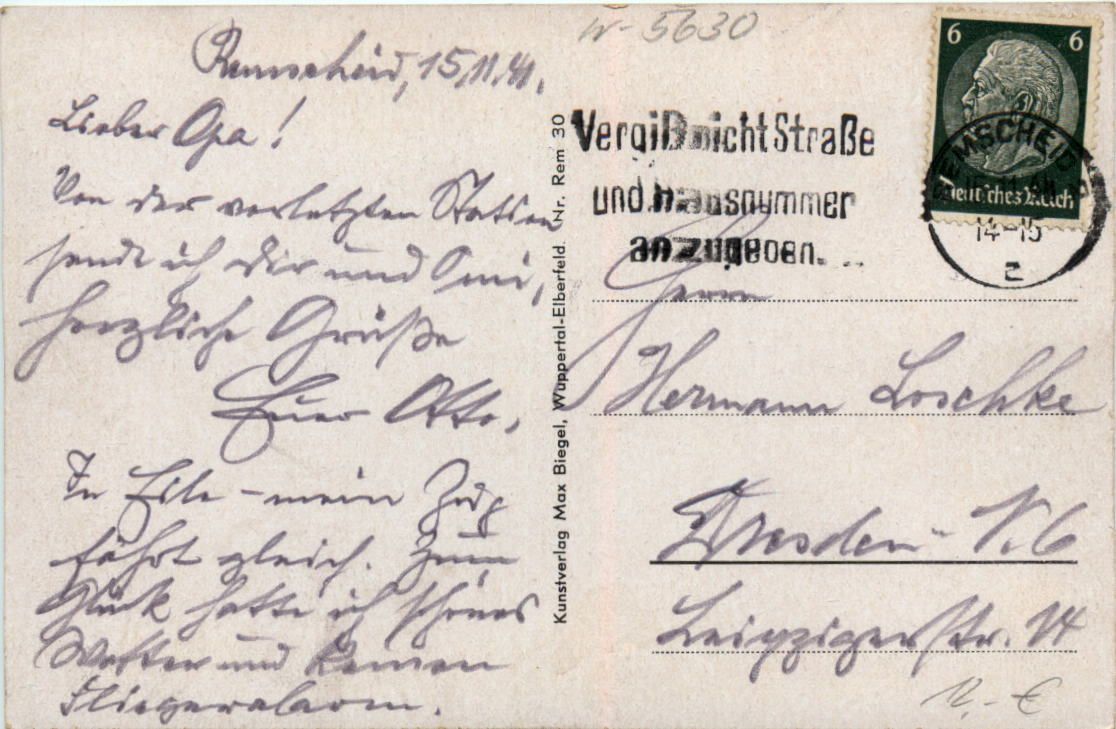 W-5630
Remscheid, 15.11.41.
Lieber Opa!
Von der vorletzten Station
sende ich Dir und Omi,
herzliche Grüße
Euer Otto.
In Eile - mein Zug
fährt gleich. Zum
Glück hatte ich schönes
Wetter und keinen
Fliegeralarm.
Kunstverlag Max Biegel, Wuppertal-Elberfeld. Nr. Rem 30
Vergiß nicht Straße
und Hausnummer
anzugeben.
6 6
Deutsches Reich
REMSCHEID
14-15
Z
Herrn
Hermann Loschke
Dresden - N. 6
Leipzigerstr. 14
12,- €